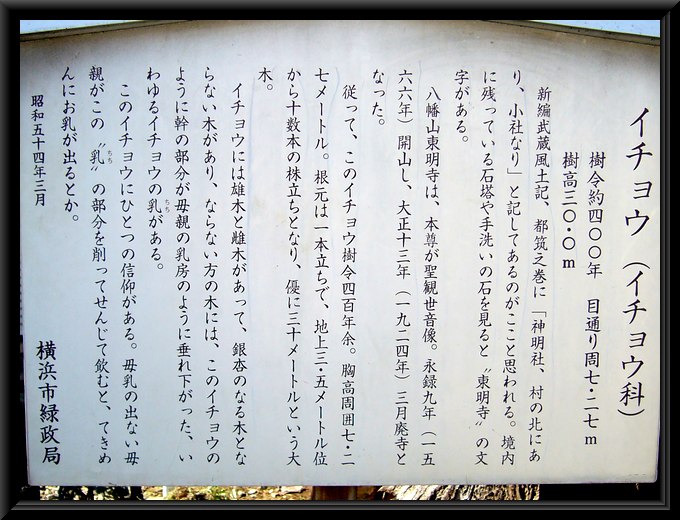 イチョウ（イチョウ科）
樹令約四〇〇年　目通り周七・二七m
樹高三〇・〇m
新編武蔵風土記、都筑之巻に「神明社、村の北にあ
り、小社なり」と記してあるのがここと思われる。境内
に残っている石塔や手洗いの石を見ると〝東明寺〟の文
字がある。
八幡山東明寺は、本尊が聖観世音像。永録九年（一五
六六年）開山し、大正十三年（一九二四年）三月廃寺と
なった。
従って、このイチョウ樹令四百年余。胸高周囲七・二
七メートル。根元は一本立ちで、地上三・五メートル位
から十数本の株立ちとなり、優に三十メートルという大
木。
イチョウには雄木と雌木があって、銀杏のなる木とな
らない木があり、ならない方の木には、このイチョウの
ように幹の部分が母親の乳房のように垂れ下がった、い
わゆるイチョウの乳がある。
ちち
このイチョウにひとつの信仰がある。母乳の出ない母
親がこの〝乳〟の部分を削ってせんじて飲むと、てきめ
ちち
んにお乳が出るとか。
昭和五十四年三月
横浜市緑政局